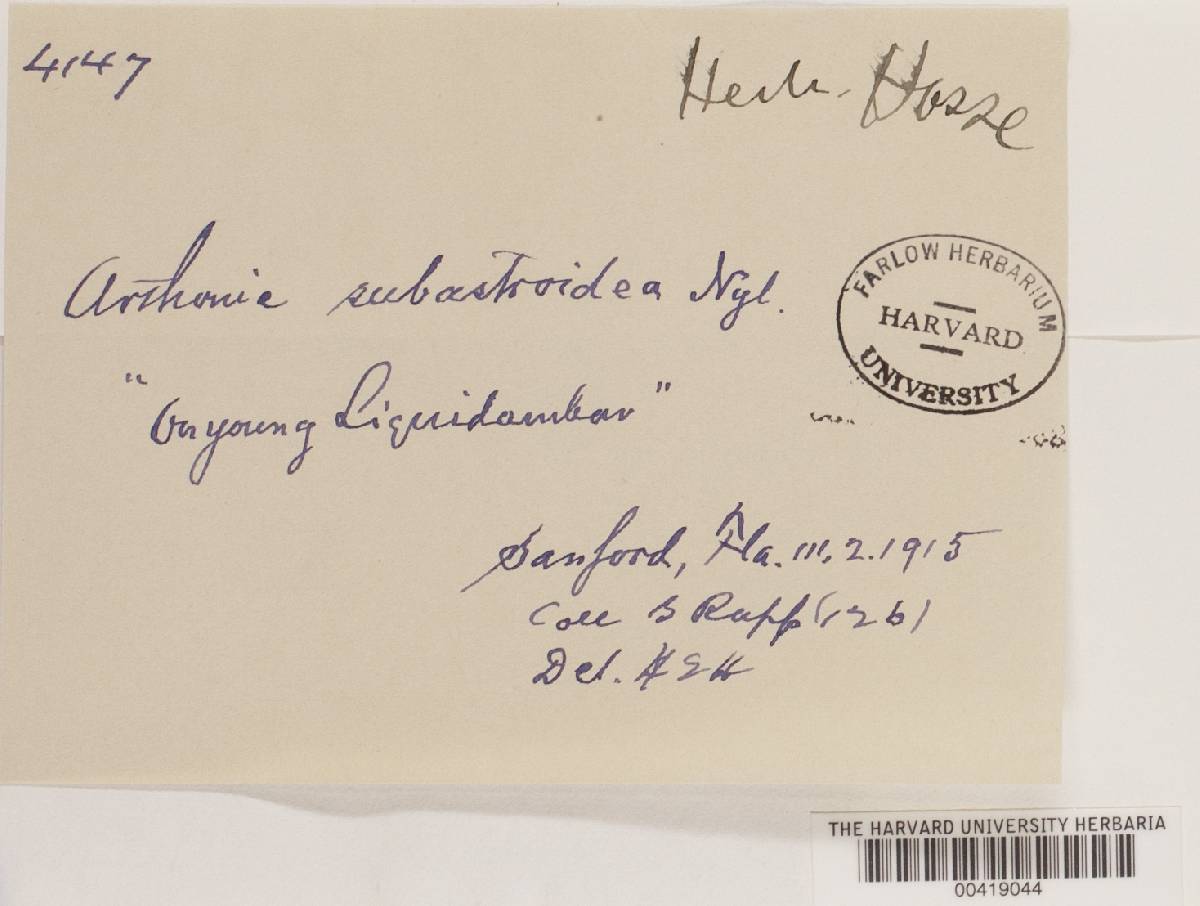 4147
Herb. Hasse
Arthonia subastroidea Nyl.
"On young Liquidambar"
FARLOW HERBARIUM
HARVARD
UNIVERSITY
Sanford, Fla. III.2.1915
Coll S Rapp (126)
Det.
THE HARVARD UNIVERSITY HERBARIA
00419044